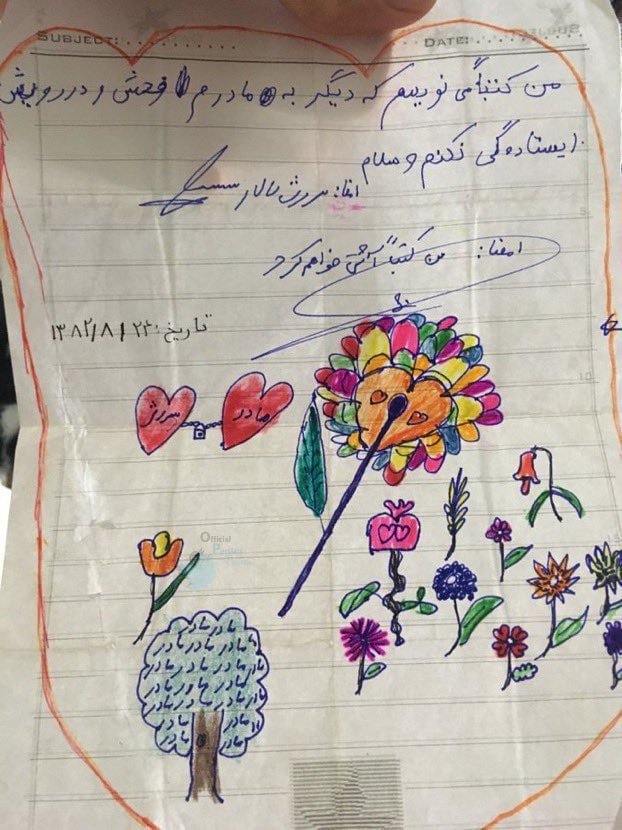 SUBJECT: DATE:
من کتباً می نویسم که دیگر به مادرم فحش و در رویش
ایستادگی نکنم و سلام
سروش
امضا: من کتباً آشتی خواهم کرد
تاریخ: ۱۳۸۲/۸/۲۳
سروش مادر
Official
مادر مادر مادر
مادر مادر مادر
مادر مادر مادر مادر
مادر مادر مادر مادر
مادر مادر مادر
مادر مادر
مادر مادر